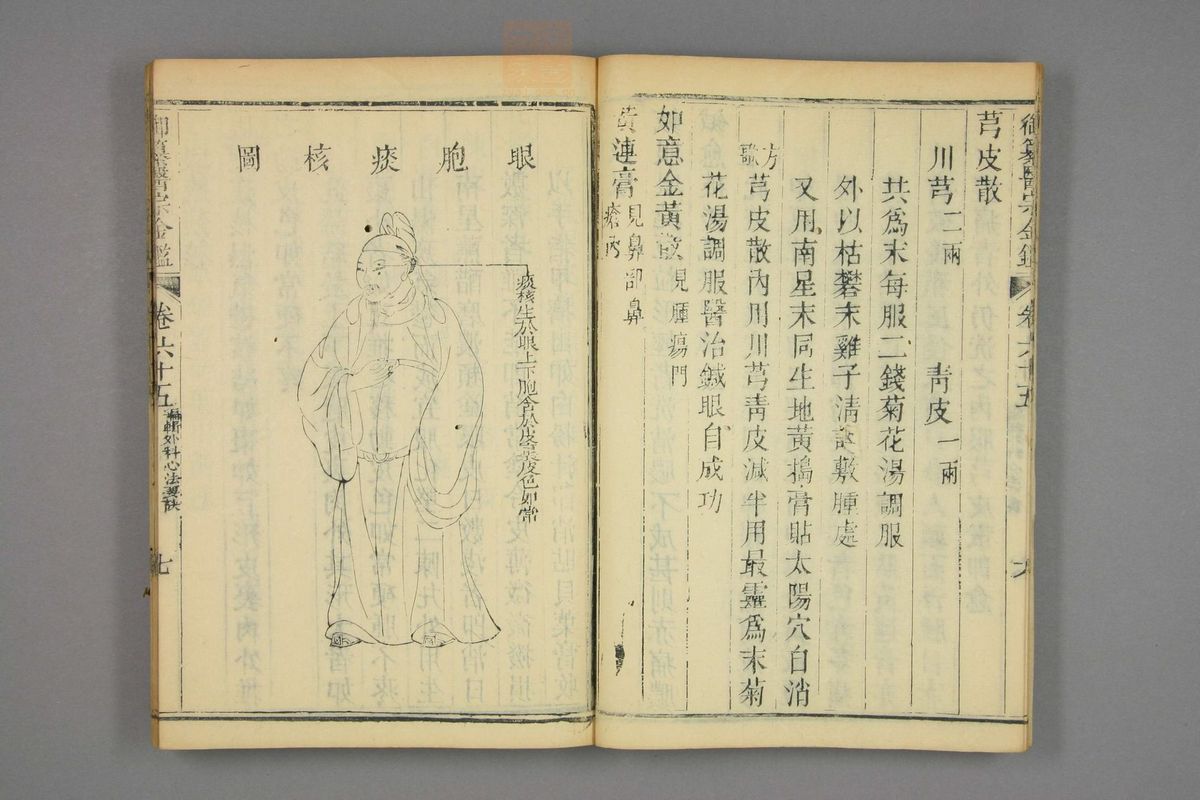 芎皮散
川芎二兩 青皮一兩
共爲末每服二錢菊花湯調服
外以枯礬末雞子清調敷腫處
又用南星末同生地黃搗膏貼太陽穴自消
方歌 芎皮散內用川芎青皮減半用最靈爲末菊
花湯調服醫治鍼眼自成功
如意金黃散 見腫瘍門
黃連膏 見鼻部鼻
瘡門
御纂醫宗金鑑 卷六十五
眼胞痰核圖
痰核生於眼上下胞含於皮裏皮色如常
御纂醫宗金鑑 卷六十五 編輯外科心法要訣 七